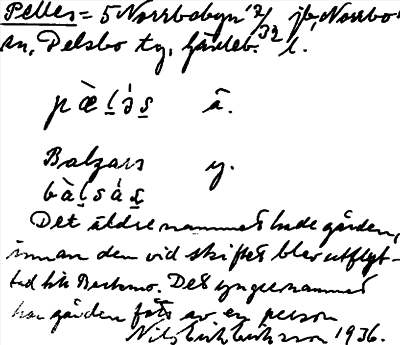 Pelles = 5 Norrbobyn 2/ jb, Norrbo
sn, Delsbo tg, Gävleb. l.
pæ̀l̥ə́s ä.
Balzars y.
bàl̥sás̥
Det äldre namnet hade gården,
innan den vid skiftet blev utflyt-
tad till Bertsmo. Det yngre namnet
har gården fått av en person
Nils Erik Eriksson 1936.